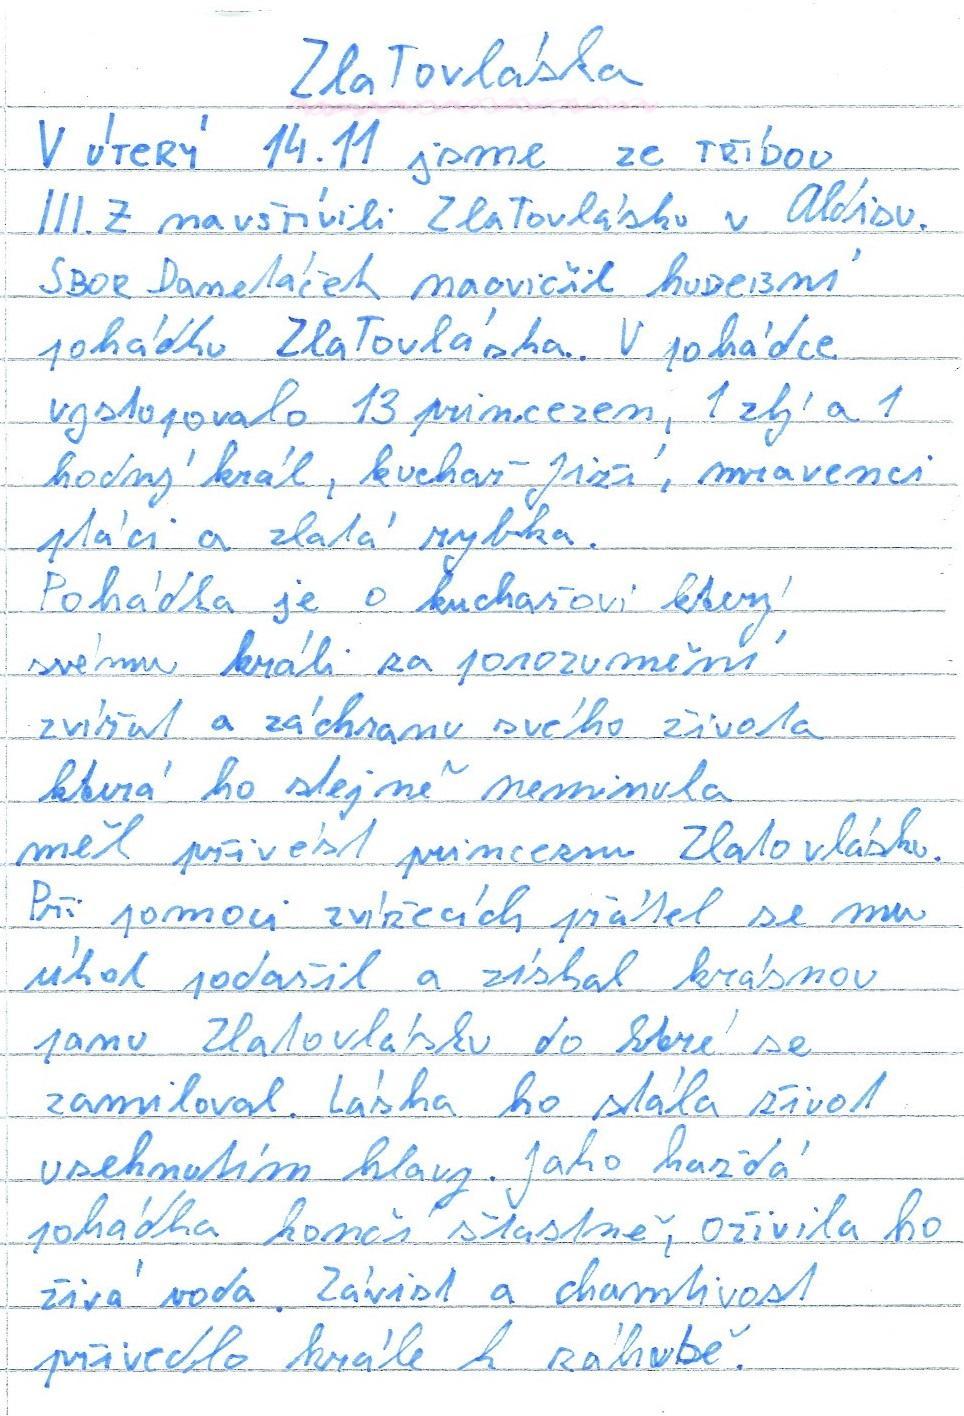 Zlatovláska
V úterý 14.11 jsme ze třídou
III.Z navštívili Zlatovlásku v Aldisu.
Sbor Domeláček nacvičil hudební
pohádku Zlatovláska. V pohádce
vystopovalo 13 princezen, 1 zlý a 1
hodný král, kuchař Jiří, mravenci
ptáci a zlatá rybka.
Pohádka je o kuchařovi který
svému králi za porozumění
zvířat a záchranu svého života
která ho stejně neminula
měl přivést princeznu Zlatovlásku.
Při pomoci zvířecích přátel se mu
úkol podařil a získal krásnou
panu Zlatovlásku do které se
zamiloval. Láska ho stála život
useknutím hlavy. Jako každá
pohádka končí šťastně, oživila ho
živá voda. Závist a chamtivost
přivedlo krále k záhubě.